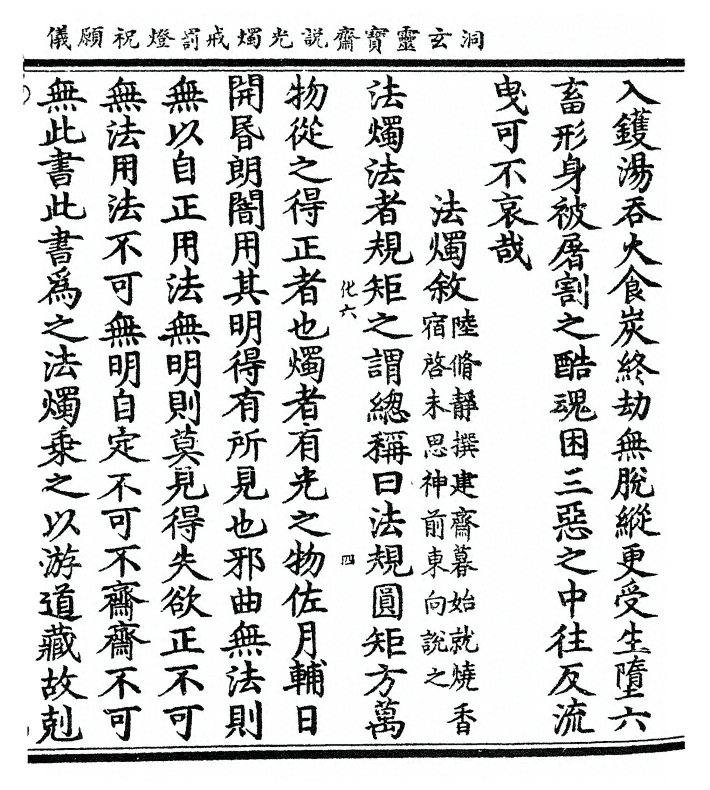 洞玄靈寶齋説光燭戒罰燈祝願儀
入鑊湯吞火食炭終劫無脫縱更受生墮六
畜形身被屠割之酷魂困三惡之中往反流
曳可不哀哉
法燭敘陸脩靜撰建齋暮始就燒香
宿啓未思神前東向說之
法燭法者規矩之謂總稱曰法規圓矩方萬
化六
四
物從之得正者也燭者有光之物佐月輔日
開昬朗闇用其明得有所見也邪曲無法則
無以自正用法無明則莫見得失欲正不可
無法用法不可無明自定不可不齋齋不可
無此書此書爲之法燭乗之以游道藏故剋